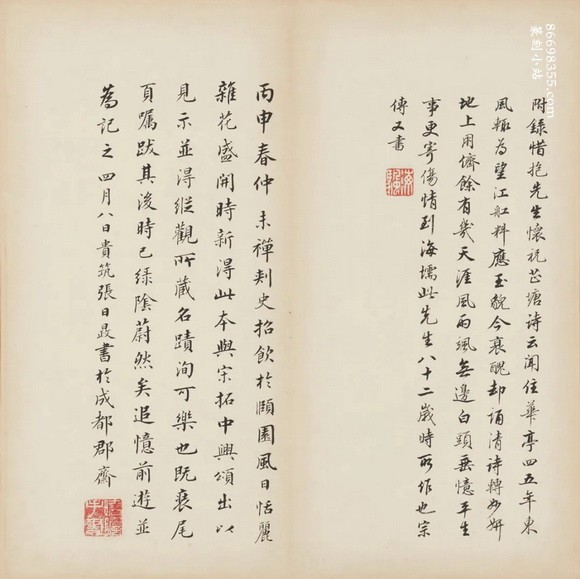 附錄惜抱先生懷祝芷塘詩云聞住華亭四五年東
風輒為望江船料應玉貌今衰醜却誦清詩轉妙妍
地上用儕餘有幾天涯風雨颯無邊白頭垂憶平生
事更寄傷情到海壖此先生八十二歲時所作也宗
傳又書
丙申春仲未禪刺史招飲於頤園風日恬麗
雜花盛開時新得此本與宋拓中興頌出以
見示並得縱觀所藏名蹟洵可樂也既裒尾
頁屬跋其後時已綠陰蔚然矣追憶前遊並
為記之四月八日貴筑張日晸書於成都郡齋
86698355.com
篆刻小站